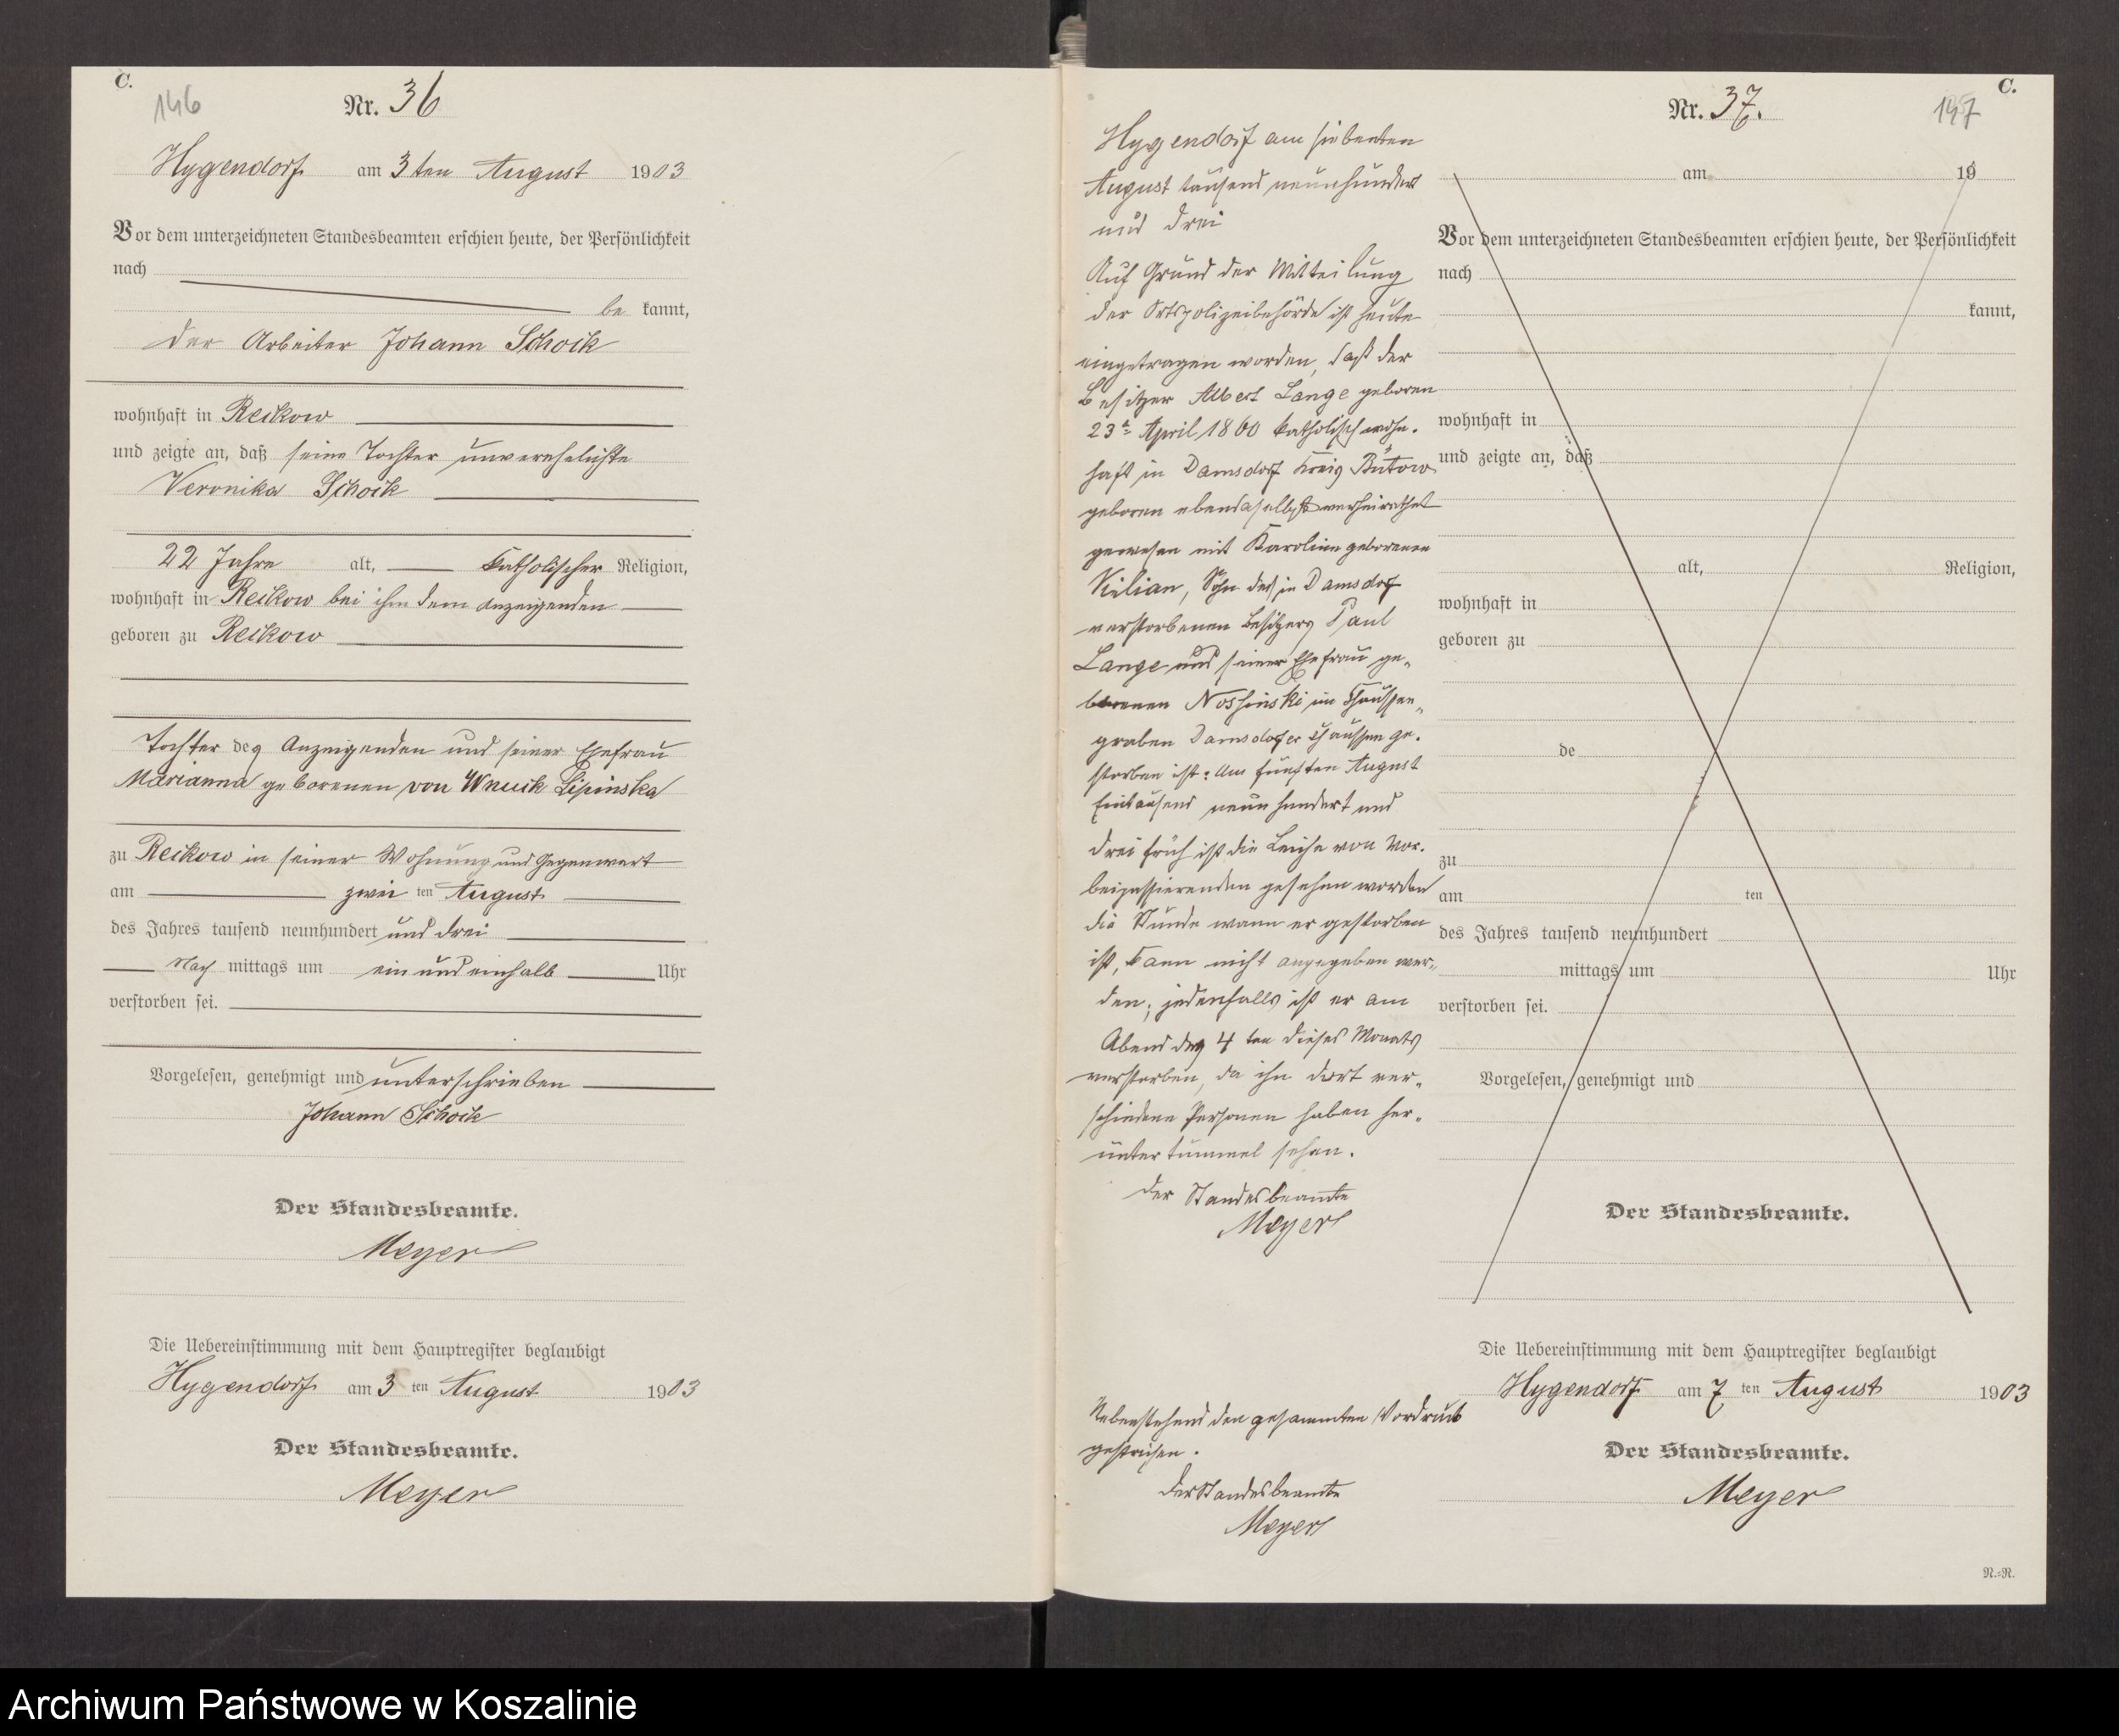 C.
146
Nr. 36
Hygendorf am 3 ten August 1903
Vor dem unterzeichneten Standesbeamten erschien heute, der Persönlichkeit
nach
be kannt,
der Arbeiter Johann Schoik
wohnhaft in Reckow
und zeigte an, daß seine Tochter unverehelichte
Veronika Schoik
22 Jahre alt, katholischer Religion,
wohnhaft in Reckow bei ihm dem Anzeigenden
geboren zu Reckow
Tochter des Anzeigenden und seiner Ehefrau
Marianna geborenen von Wnuck Lipinska
zu Reckow in seiner Wohnung und Gegenwart
am zwei ten August
des Jahres tausend neunhundert und drei
Nach mittags um ein und einhalb Uhr
verstorben sei.
Vorgelesen, genehmigt und unterschrieben
Johann Schoik
Der Standesbeamte.
Meyer
Die Uebereinstimmung mit dem Hauptregister beglaubigt
Hygendorf am 3 ten August 1903
Der Standesbeamte.
Meyer
C.
147
Nr. 37.
Hygendorf am siebenten
August tausend neunhundert
und drei
Auf Grund der Mitteilung
der Ortspolizeibehörde ist heute
eingetragen worden, daß der
Besitzer Albert Lange geboren
23t April 1860 katholisch wohn-
haft in Damsdorf Kreis Bütow
geboren ebendaselbst verheirathet
gewesen mit Karoline geborenen
Kilian, Sohn des in Damsdorf
verstorbenen Besitzers Paul
Lange und seiner Ehefrau ge-
borenen Noshinski im Chaussee-
graben Damsdorfer Chaussee ge-
storben ist: Am fünften August
Eintausend neun hundert und
drei früh ist die Leiche von Vor-
beipassierenden gesehen worden
die Stunde wann er gestorben
ist, kann nicht angegeben wer-
den; jedenfalls ist er am
Abend des 4 ten dieses Monats
verstorben, da ihn dort ver-
schiedene Personen haben her-
unter tummel sehen.
Der Standesbeamte
Meyer
Nebenstehend den gesammten Vordruck
gestrichen.
Der Standesbeamte
Meyer
am 19
Vor dem unterzeichneten Standesbeamten erschien heute, der Persönlichkeit
nach
kannt,
wohnhaft in
und zeigte an, daß
alt, Religion,
wohnhaft in
geboren zu
de
zu
am ten
des Jahres tausend neunhundert
mittags um Uhr
verstorben sei.
Vorgelesen, genehmigt und
Der Standesbeamte.
Die Uebereinstimmung mit dem Hauptregister beglaubigt
Hygendorf am 7 ten August 1903
Der Standesbeamte.
Meyer
N.=R.
Archiwum Państwowe w Koszalinie